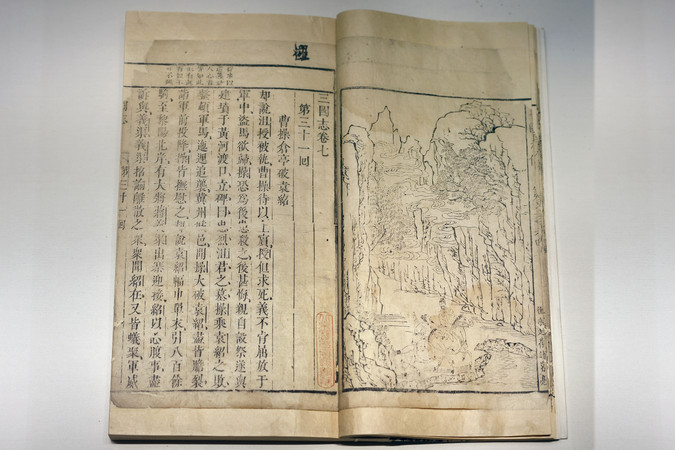 三國志卷七
第三十一囘
曹操倉亭破袁紹
却說沮授被 曹操待以上賓授但求死義不肯屈放于
軍中盜馬欲歸操恐爲後患殺之後甚悔親自設祭遂與
建墳于黃河渡口立碑曰忠烈沮君之墓操乘袁紹之敗
整頓軍馬迤邐追襲冀州城邑聞操大破袁紹盡皆膽裂
詣軍前投降操皆撫慰之却說袁紹幅巾單衣引八百餘
騎至黎陽北岸有大將蔣義渠出寨迎接紹以心腹事盡
訴與義渠義渠招諭離散之衆衆聞紹在又皆蟻聚軍威
第三十一囘